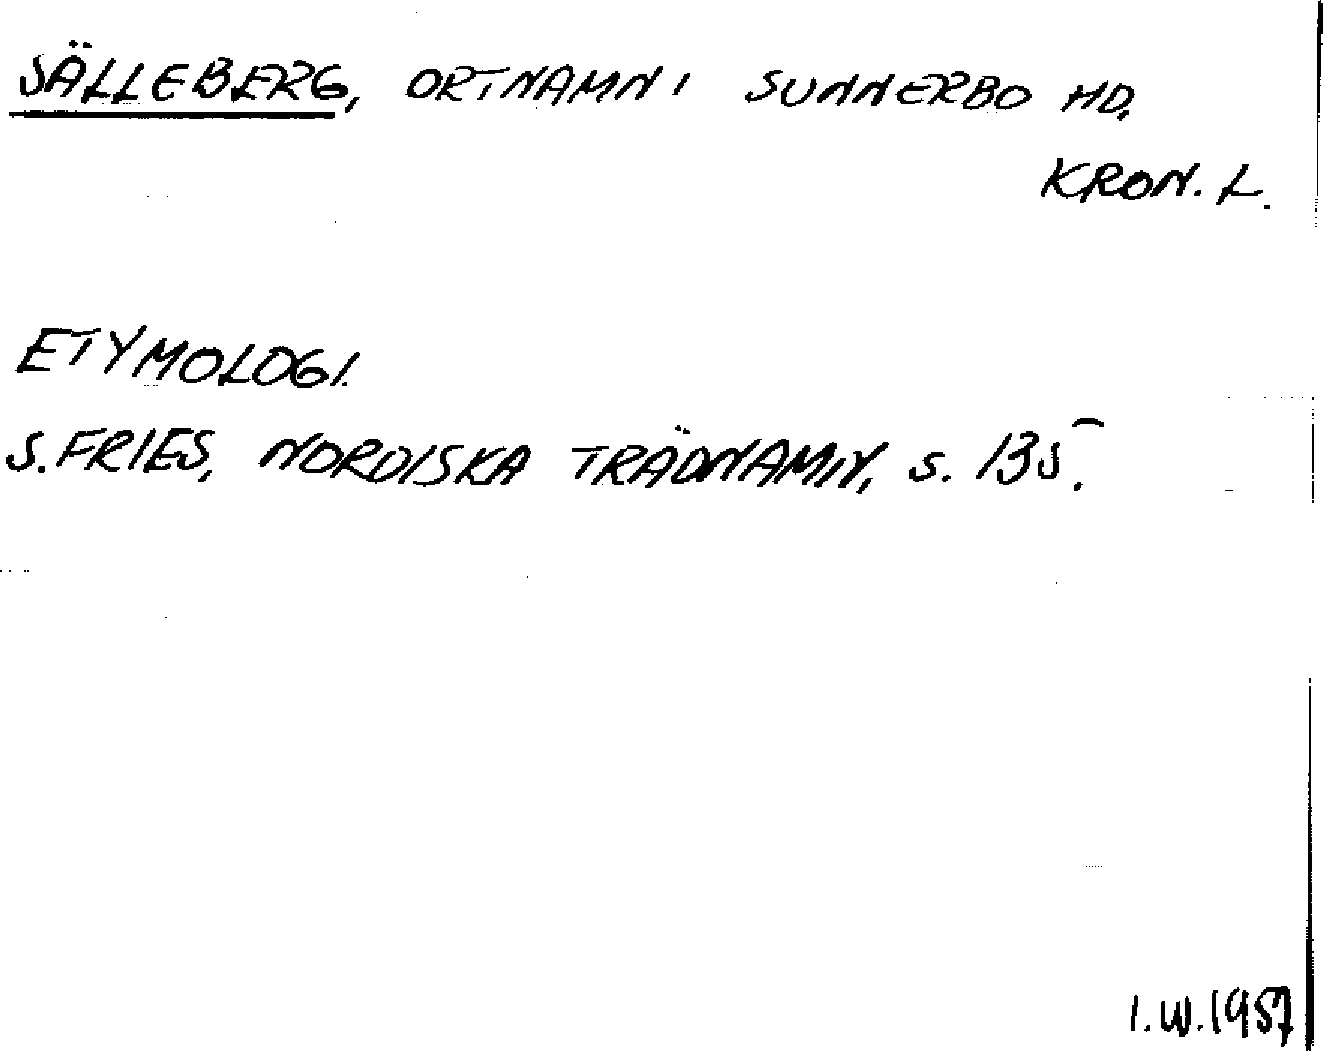 SÄLLEBERG, ORTNAMN I SUNNERBO HD.
KRON. L.
ETYMOLOGI.
S. FRIES, NORDISKA TRÄDNAMN, S. 135.
I.W. 1957